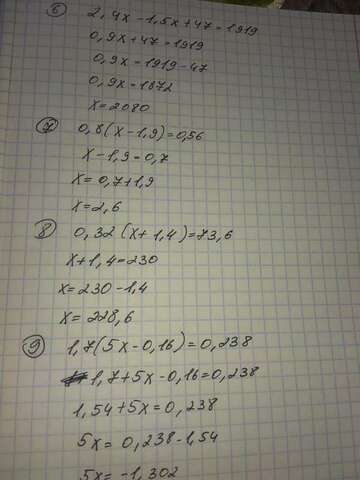 6 2,4x-1,5x+47=1919
0,9x+47=1919
0,9x=1919-47
0,9x=1872
x=2080
7 0,8(x-1,9)=0,56
x-1,9=0,7
x=0,7+1,9
x=2,6
8 0,32(x+1,4)=73,6
x+1,4=230
x=230-1,4
x=228,6
9 1,7(5x-0,16)=0,238
1,7+5x-0,16=0,238
1,54+5x=0,238
5x=0,238-1,54
5x=-1,302